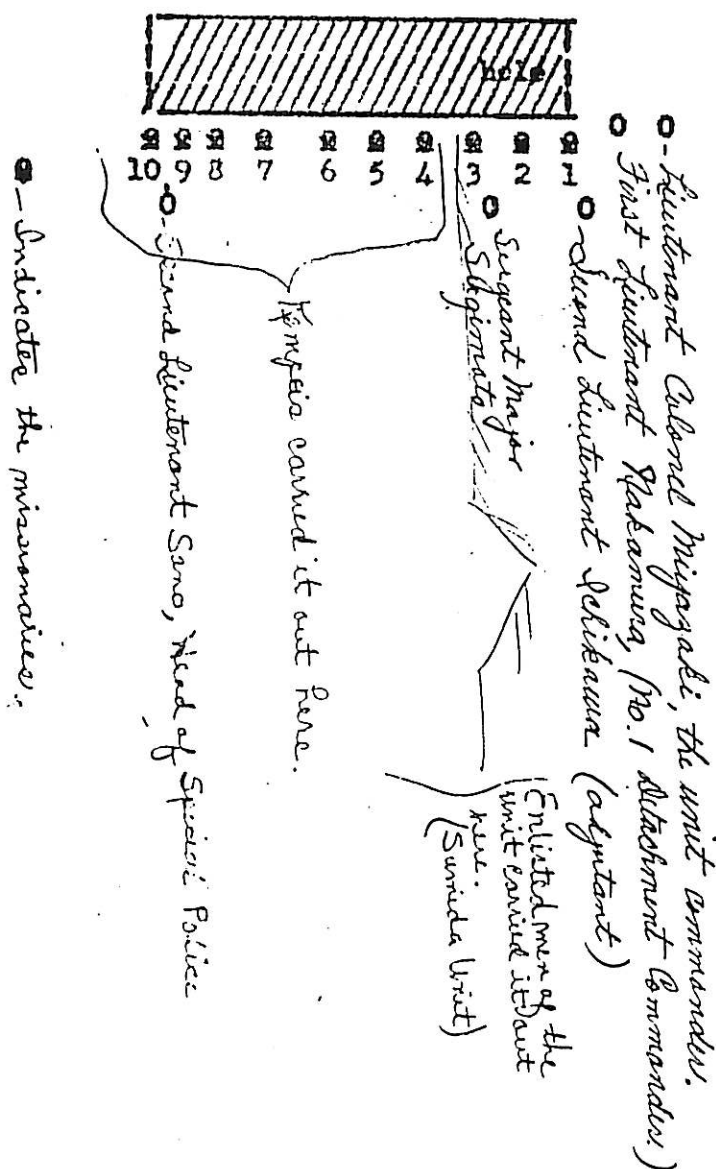 O-Lieutenant Colonel Miyazaki, the unit commander.
O First Lieutenant Nakamura, (No. 1 Detachment Commander.)
O-Second Lieutenant Ichikawa (adjutant)
hole
1
2
3
4
5
6
7
8
9
10
O Sergeant Major
Sugimoto
Enlisted men of the
unit carried it out
here.
(Sumida Unit)
Kempeis carried it out here.
O-Second Lieutenant Sano, Head of Special Police
- Indicates the missionaries.